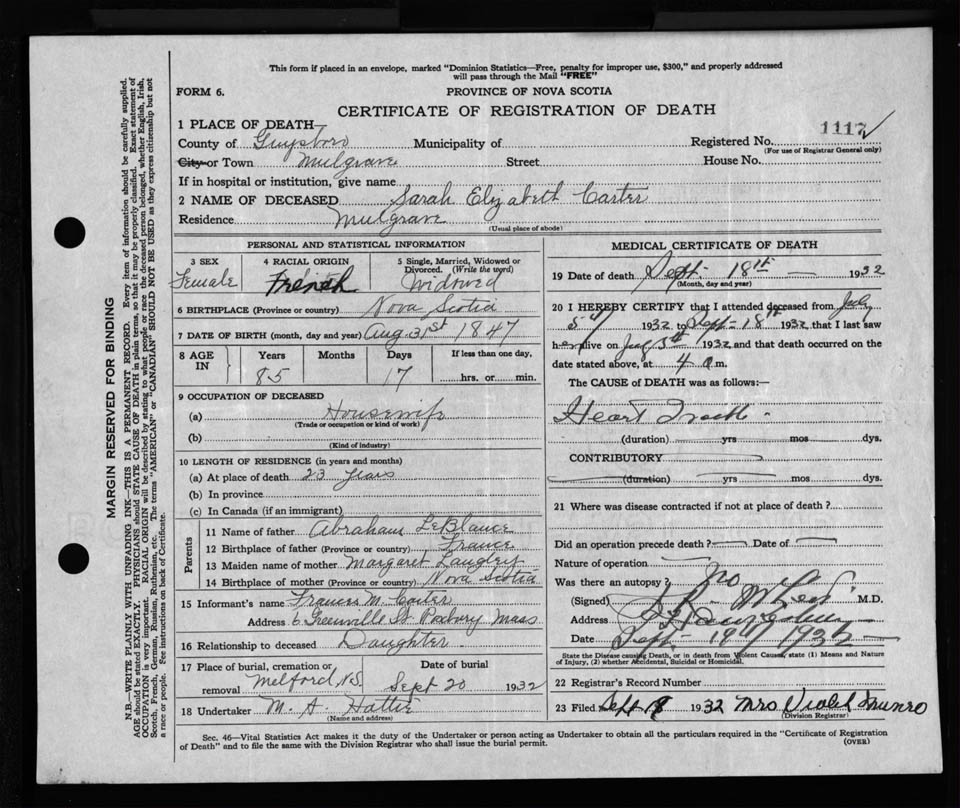 This form if placed in an envelope, marked "Dominion Statistics—Free, penalty for improper use, $300," and properly addressed
will pass through the Mail "FREE"
FORM 6.
PROVINCE OF NOVA SCOTIA
CERTIFICATE OF REGISTRATION OF DEATH
1 PLACE OF DEATH—
County of Guysboro Municipality of Registered No. 1117
(For use of Registrar General only)
City or Town Mulgrave Street House No.
If in hospital or institution, give name
2 NAME OF DECEASED Sarah Elizabeth Carter
Residence Mulgrave
(Usual place of abode)
PERSONAL AND STATISTICAL INFORMATION
3 SEX 4 RACIAL ORIGIN 5 Single, Married, Widowed or
Divorced. (Write the word)
Female French Widowed
6 BIRTHPLACE (Province or country) Nova Scotia
7 DATE OF BIRTH (month, day and year) Aug 31st 1847
8 AGE IN Years Months Days If less than one day,
85 17 hrs. or min.
9 OCCUPATION OF DECEASED
(a) Housewife
(Trade or occupation or kind of work)
(b)
(Kind of industry)
10 LENGTH OF RESIDENCE (in years and months)
(a) At place of death 23 years
(b) In province
(c) In Canada (if an immigrant)
Parents
11 Name of father Abraham LeBlance
12 Birthplace of father (Province or country) France
13 Maiden name of mother Margaret Langley
14 Birthplace of mother (Province or country) Nova Scotia
15 Informant's name Frances M. Carter
Address 6 Greenville St Roxbury Mass
16 Relationship to deceased Daughter
17 Place of burial, cremation or Date of burial
removal Melford, N.S. Sept 20 1932
18 Undertaker M. A. Hattie
(Name and address)
MEDICAL CERTIFICATE OF DEATH
19 Date of death Sept. 18th — 1932
(Month, day and year)
20 I HEREBY CERTIFY that I attended deceased from July
5th 1932 to Sept 18th 1932, that I last saw
her alive on July 5th 1932 and that death occurred on the
date stated above, at 4 a.m.
The CAUSE of DEATH was as follows:—
Heart
(duration) yrs mos dys.
CONTRIBUTORY
(duration) yrs mos dys.
21 Where was disease contracted if not at place of death?
Did an operation precede death? — Date of —
Nature of operation
Was there an autopsy? No
(Signed) M.D.
Address
Date Sept 19th 1932
State the Disease causing Death, or in death from Violent Causes, state (1) Means and Nature
of Injury, (2) whether Accidental, Suicidal or Homicidal.
22 Registrar's Record Number
23 Filed Sept 18 1932 Mrs Violet Munro
(Division Registrar)
Sec. 46—Vital Statistics Act makes it the duty of the Undertaker or person acting as Undertaker to obtain all the particulars required in the "Certificate of Registration
of Death" and to file the same with the Division Registrar who shall issue the burial permit.
(OVER)
MARGIN RESERVED FOR BINDING
N.B.—WRITE PLAINLY WITH UNFADING INK—THIS IS A PERMANENT RECORD. Every item of information should be carefully supplied.
AGE should be stated EXACTLY. PHYSICIANS should STATE CAUSE OF DEATH in plain terms, so that it may be properly classified. Exact statement of
OCCUPATION is very important. RACIAL ORIGIN will be described by stating to what people or race the deceased person belonged, whether English, Irish,
Scotch, French, German, Russian, Ruthenian, etc. The terms "AMERICAN" or "CANADIAN" SHOULD NOT BE USED as they express citizenship but not
a race or people. See instructions on back of Certificate.